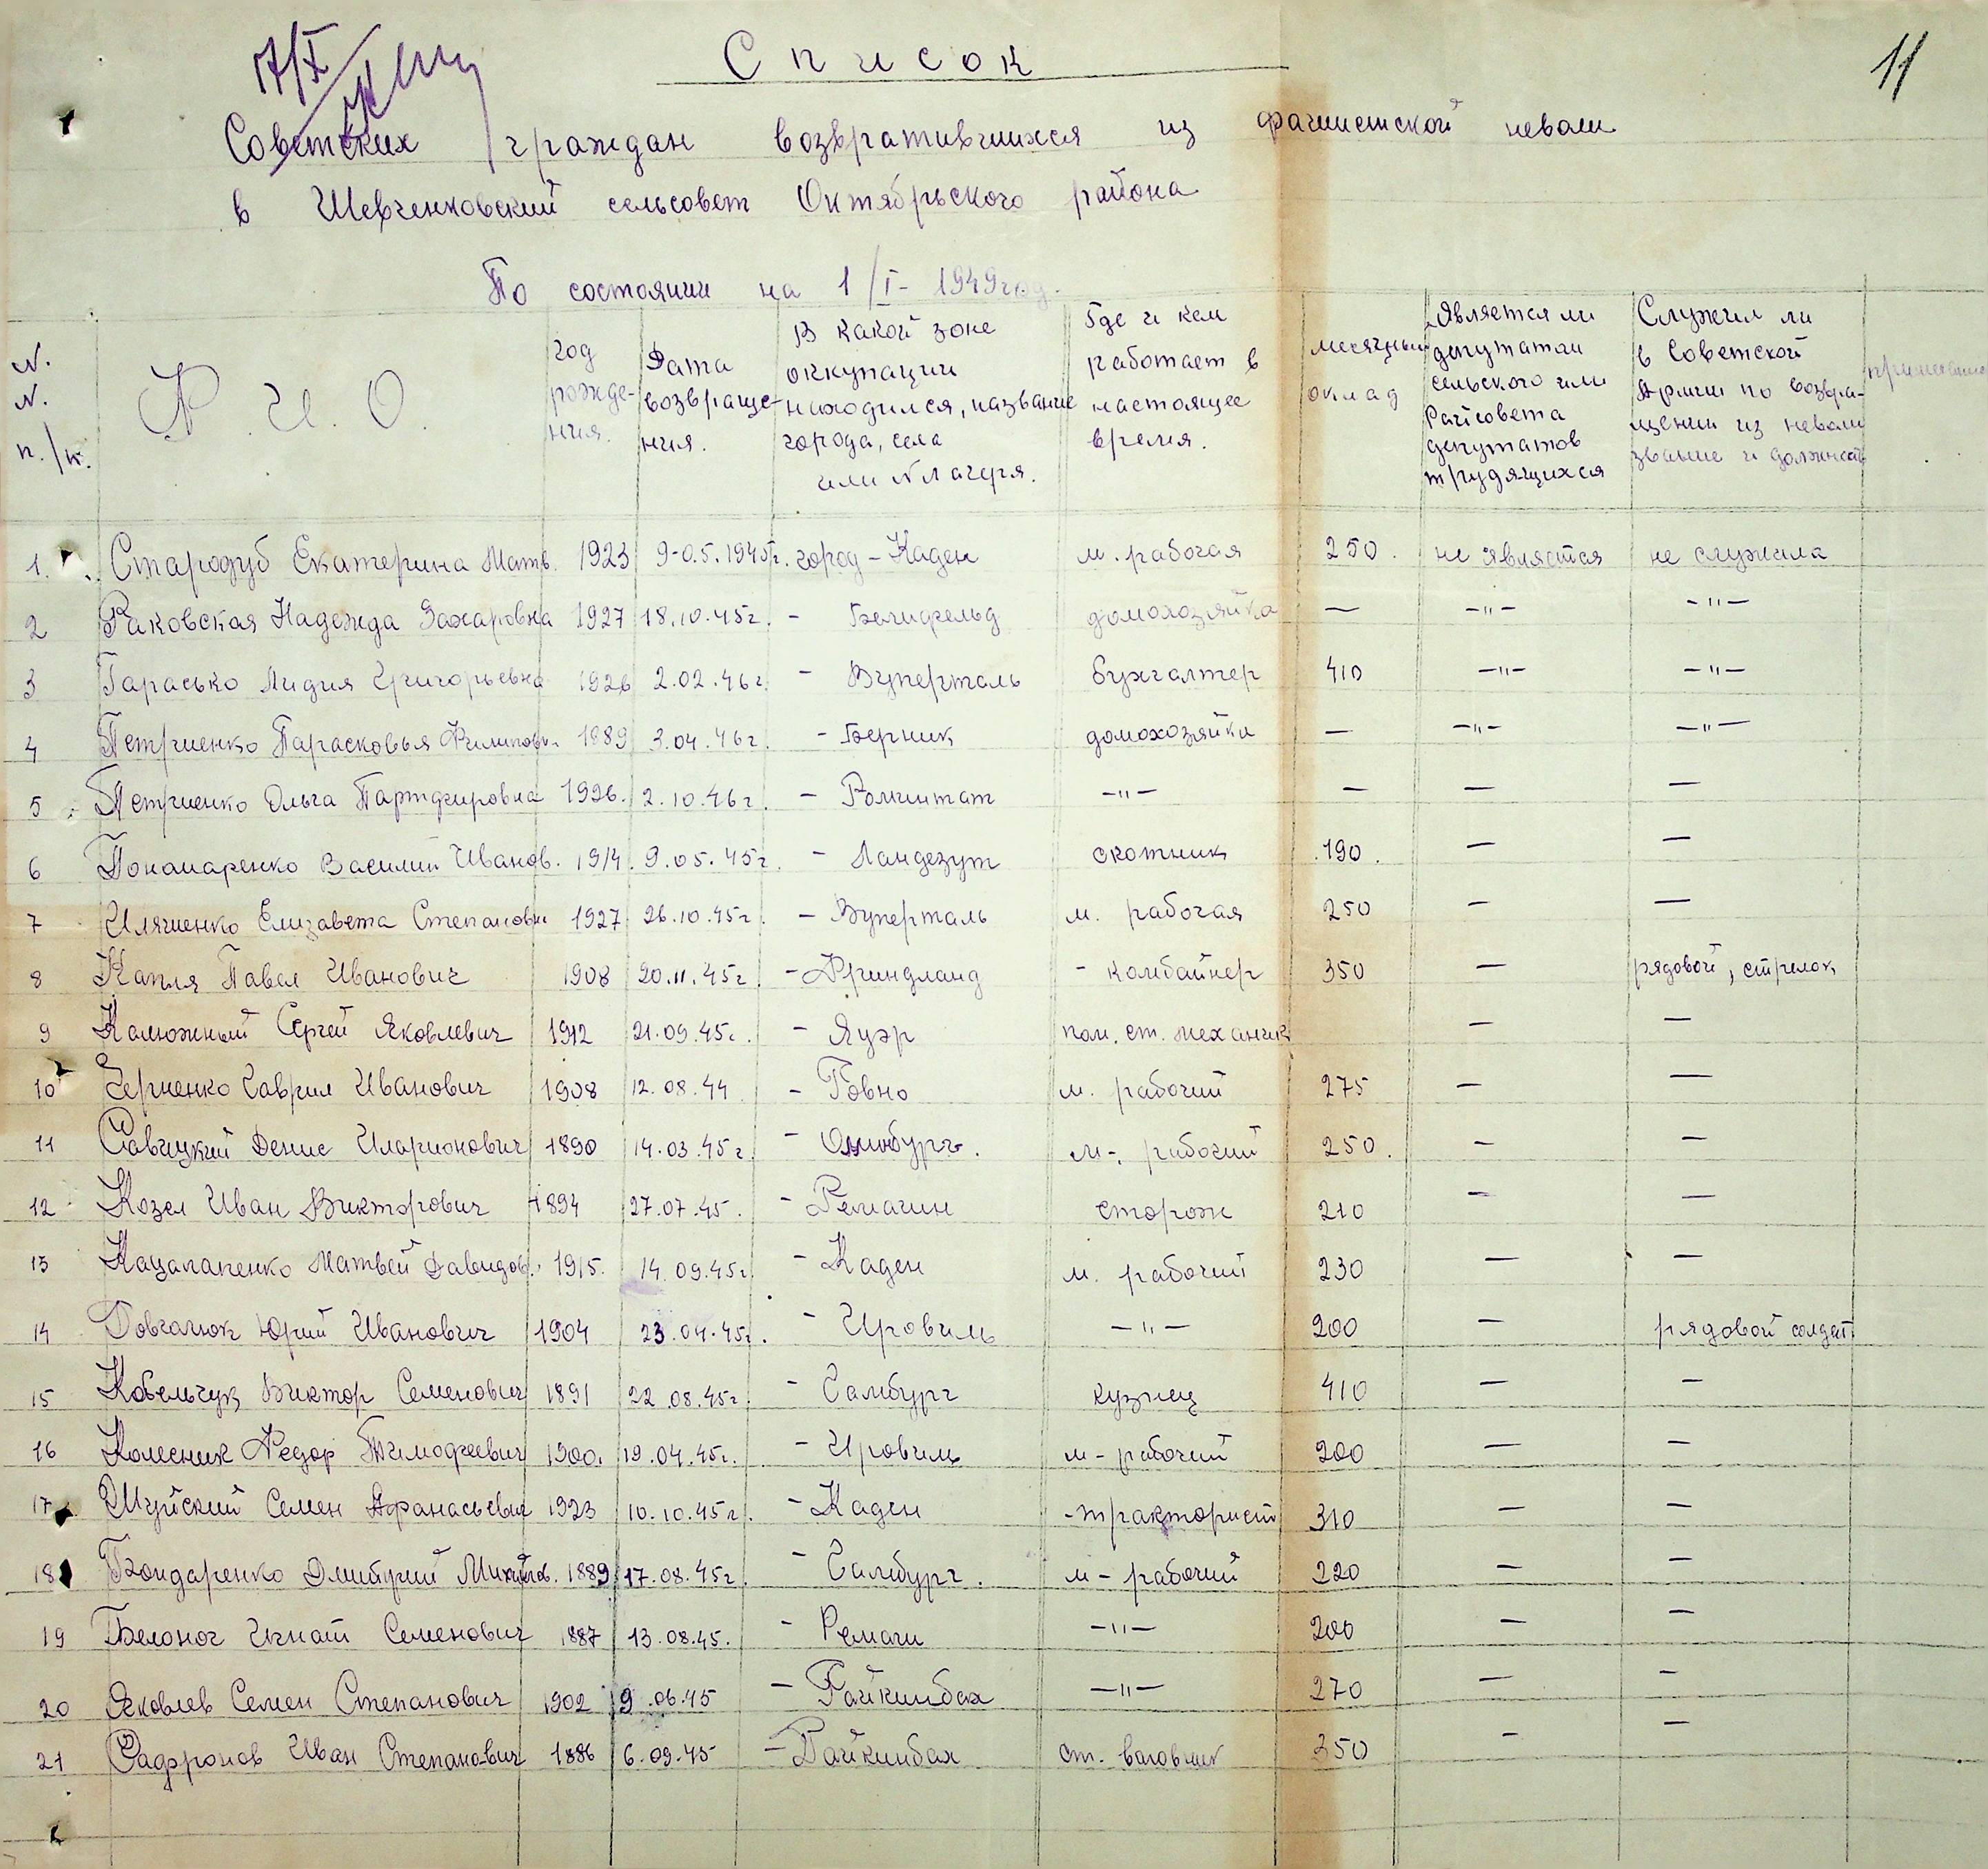 17/X
Список
11
Советских граждан возвратившихся из фашистской неволи
в Шевченковский сельсовет Октябрьского района
По состоянии на 1/I- 1949год.
N. N. п./п. Ф. И. О. год рожде-ния. Дата возвраще-ния. В какой зоне оккупации находился, название города, села или N лагеря. Где и кем работает в настоящее время. месячный оклад Является ли депутатом сельского или Райсовета депутатов трудящихся Служил ли в Советской Армии по возвра-щении из неволи звание и должность примечание
1. Стародуб Екатерина Матв. 1923 9-05.1945г. город - Каден м. рабочая 250. не является не служила
2 Раковская Надежда Захаровна 1927 18.10.45г. - Белифельд домохозяйка — -"- -"-
3 Гарасько Лидия Григорьевна 1926 2.02.46г. - Вуперталь бухгалтер 410 -"- -"-
4 Петриенко Парасковья Филиповн. 1889 3.04.46г. - Берник домохозяйка — -"- -"-
5 Петриенко Ольга Партфировна 1926. 2.10.46г. - Роминтат -"- — — —
6 Понамаренко Василий Иванов. 1914. 9.05.45г. - Ландезут скотник 190. — —
7 Иляшенко Елизавета Степановн 1927 26.10.45г. - Вуперталь м. рабочая 250 — —
8 Капля Павел Иванович 1908 20.11.45г. - Фриндланд - комбайнер 350 — рядовой, стрелок
9 Калюжный Сергей Яковлевич 1912 21.09.45г. - Яуэр пом. ст. механик — —
10 Черненко Гаврил Иванович 1908 12.08.44 - Ровно м. рабочий 275 — —
11 Савицкий Денис Иларионович 1890 14.03.45г. - м-. рабочий 250. — —
12 Козел Иван Викторович 1894 27.07.45. - Ремагин сторож 210 — —
13 Кацапапенко Матвей Давидов. 1915. 14.09.45г. - Каден м. рабочий 230 — —
14 Довгалюк Юрий Иванович 1904 23.04.45г. - Ировиль -"- 200 — рядовой солдат
15 Кобельчук Виктор Семенович 1891 22.08.45г. - Гамбург кузнец 410 — —
16 Колесник Федор Тимофеевич 1900. 19.04.45г. - Ировиль м-рабочий 200 — —
17. Шуйский Семен Афанасьевич 1923 10.10.45г. - Каден -тракторист 310 — —
18 Бондаренко Дмитрий Михайлов. 1889 17.08.45г. - Гамбург. м-рабочий 220 — —
19 Белоног Игнат Семенович 1887 13.08.45. - Ремаги -"- 200 — —
20 Яковлев Семен Степанович 1902 9.06.45 - Райкинбах -"- 270 — —
21 Сафронов Иван Степанович 1886 6.09.45 - Райкинбах ст. 350 — —